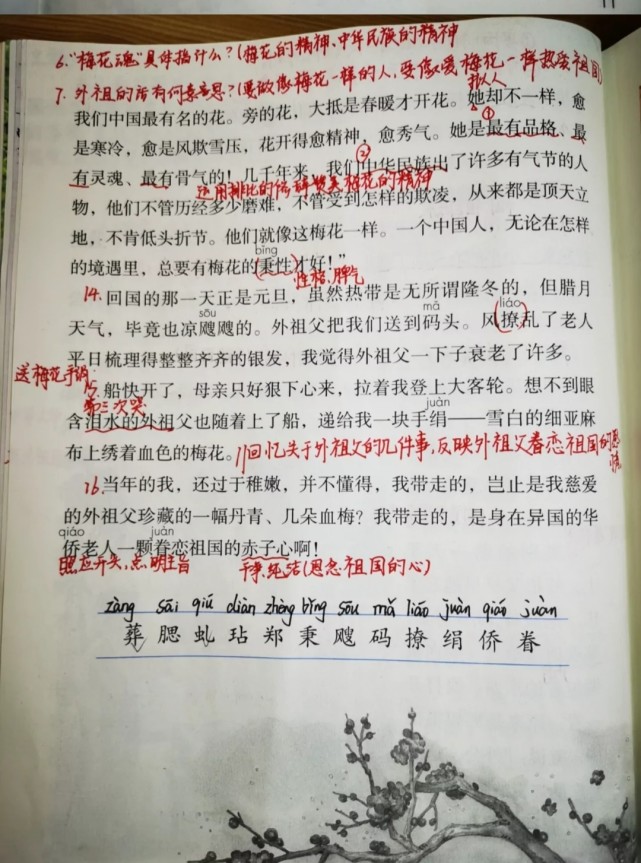 6."梅花魂"具体指什么?(梅花的精神、中华民族的精神
7.外祖父的话有何意思?(要做像梅花一样的人,要像爱梅花一样热爱祖国)
拟人
我们中国最有名的花。旁的花,大抵是春暖才开花。她却不一样,愈
①
是寒冷,愈是风欺雪压,花开得愈精神,愈秀气。她是最有品格、最
②
有灵魂、最有骨气的!几千年来,我们中华民族出了许多有气节的人
运用排比的修辞赞美梅花的精神
物,他们不管历经多少磨难,不管受到怎样的欺凌,从来都是顶天立
地,不肯低头折节。他们就像这梅花一样。一个中国人,无论在怎样
bǐng
的境遇里,总要有梅花的(秉性)才好!”
性格,脾气
14.回国的那一天正是元旦,虽然热带是无所谓隆冬的,但腊月
sōu mǎ liáo
天气,毕竟也凉飕飕的。外祖父把我们送到码头。风撩乱了老人
平日梳理得整整齐齐的银发,我觉得外祖父一下子衰老了许多。
送梅花手绢
15.船快开了,母亲只好狠下心来,拉着我登上大客轮。想不到眼
第三次哭 juàn
含泪水的外祖父也随着上了船,递给我一块手绢——雪白的细亚麻
布上绣着血色的梅花。
回忆关于外祖父的几件事,反映外祖父眷恋祖国的思情
16.当年的我,还过于稚嫩,并不懂得,我带走的,岂止是我慈爱
的外祖父珍藏的一幅丹青、几朵血梅?我带走的,是身在异国的华
qiáo juàn
侨老人一颗眷恋祖国的赤子心啊!
照应开头,点明主旨 纯洁(思念祖国的心)
zàng sāi qiú diàn zhèng bǐng sōu mǎ liáo juàn qiáo juàn
葬 腮 虬 玷 郑 秉 飕 码 撩 绢 侨 眷